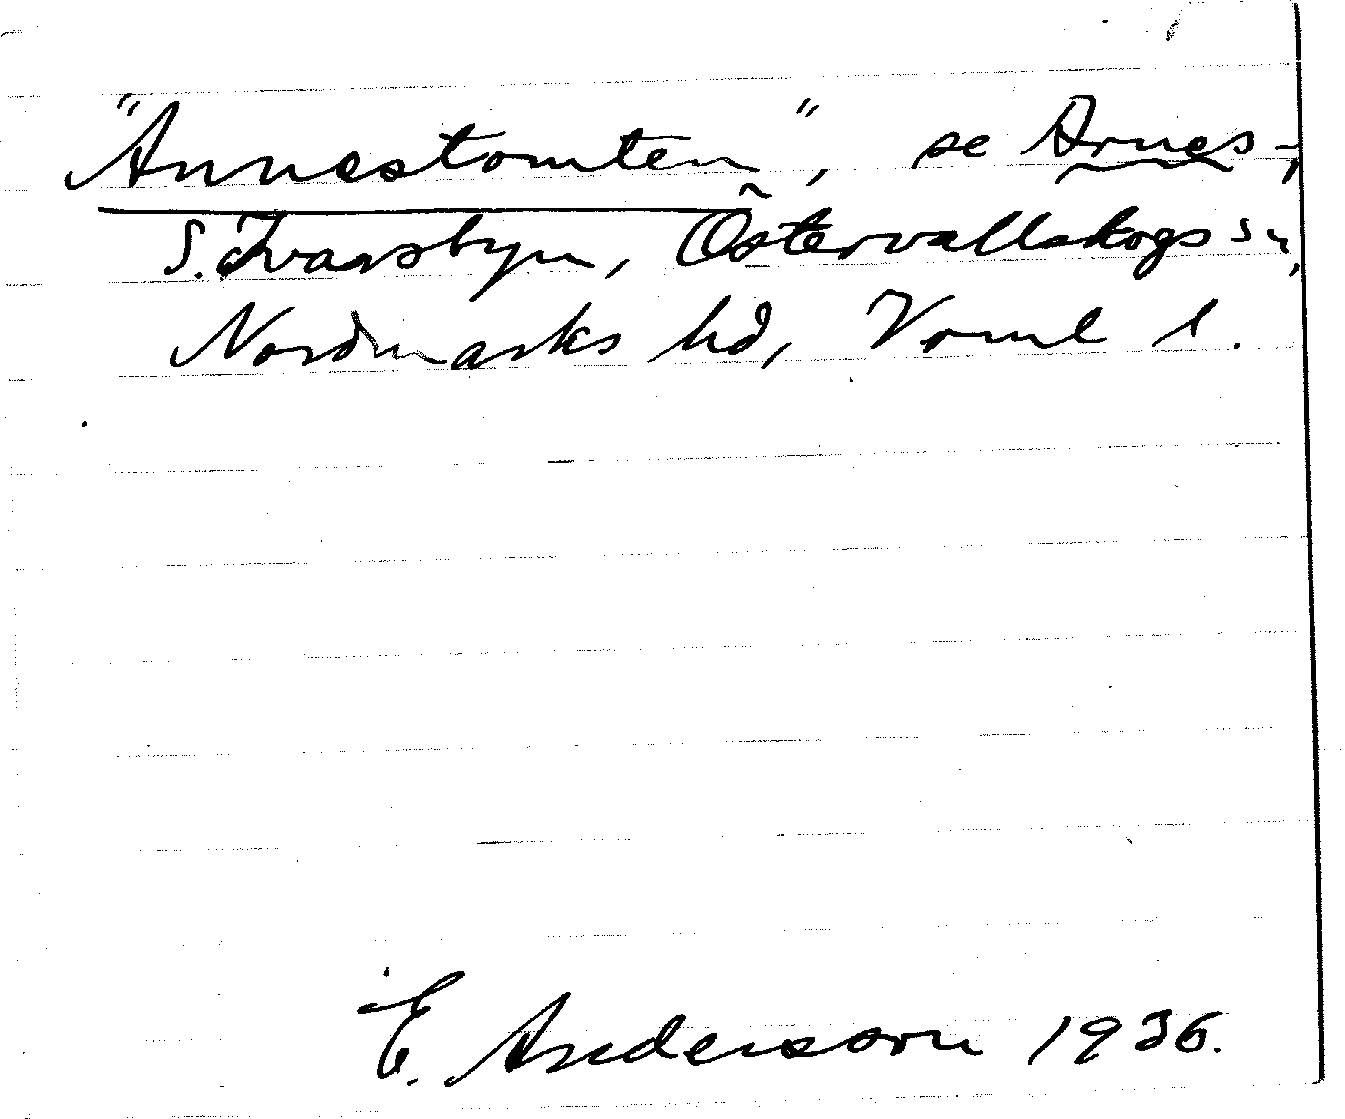 "Annestomten", se Arnes-,
S. Ivarsbyn, Östervallskogs sn,
Nordmarks hd, Verml l.
E. Anderson 1936.